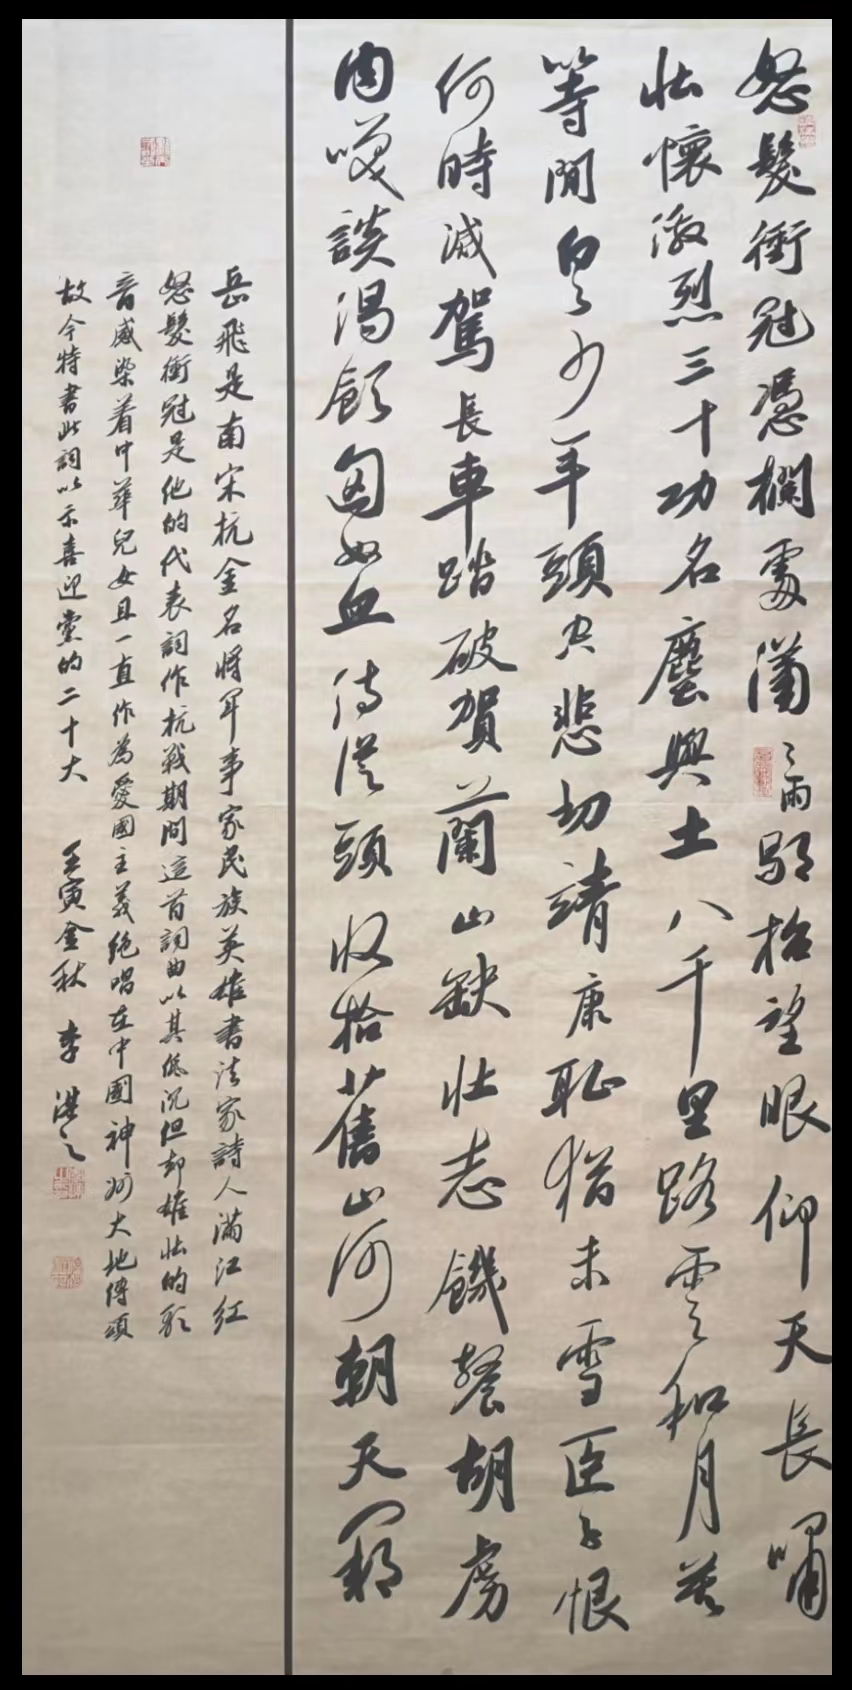 怒髮衝冠憑欄處瀟〻雨歇抬望眼仰天長嘯
壯懷激烈三十功名塵與土八千里路雲和月莫
等閒白了少年頭空悲切靖康恥猶未雪臣子恨
何時滅駕長車踏破賀蘭山缺壯志饑餐胡虜
肉笑談渴飲匈奴血待從頭收拾舊山河朝天闕
岳飛是南宋抗金名將軍事家民族英雄書法家詩人滿江紅
怒髮衝冠是他的代表詞作抗戰期間這首詞曲以其低沉但却雄壯的歌
音感染着中華兒女且一直作為愛國主義絕唱在中國神州大地傳頌
故今特書此詞以示喜迎黨的二十大 壬寅金秋 李之